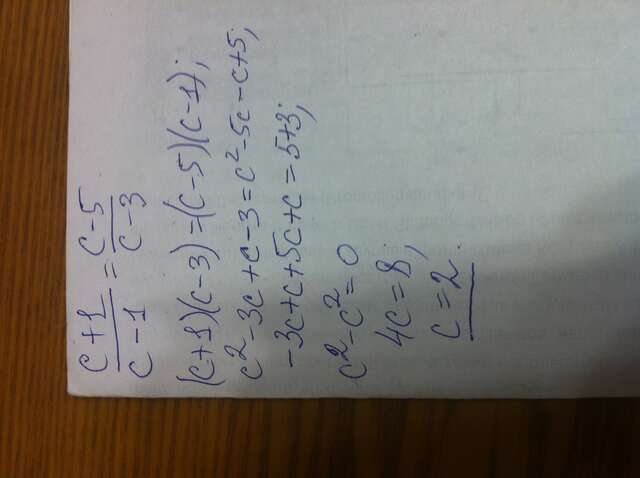 c+1/c-1 = c-5/c-3
(c+1)(c-3)=(c-5)(c-1);
c²-3c+c-3=c²-5c-c+5;
-3c+c+5c+c=5+3;
c²-c²=0
4c=8;
c=2.